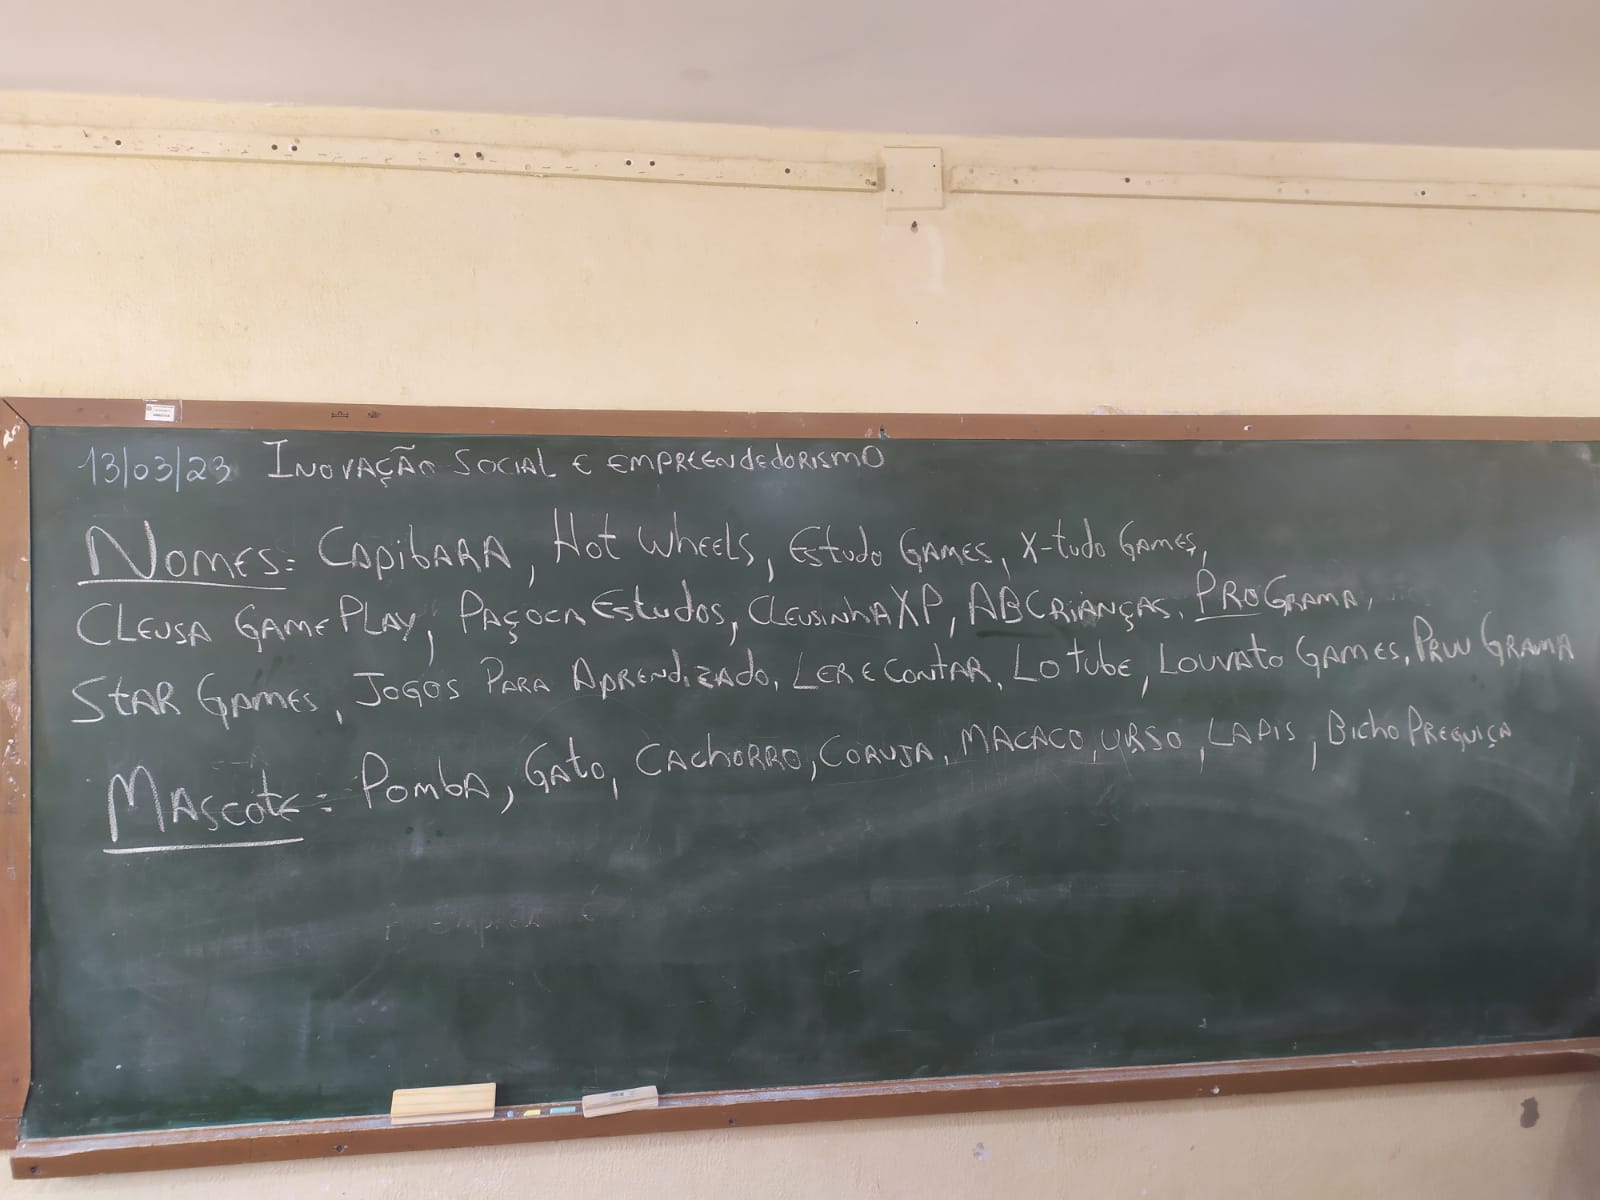 13/03/23 Inovação Social e Empreendedorismo
Nomes: Capibara, Hot Wheels, Estudo Games, X-tudo Games,
Cleusa GamePlay, Paçoca Estudos, Cleusinha XP, ABCrianças, PROGrama,
Star Games, Jogos Para Aprendizado, Ler e Contar, Lo tube, Louvato Games, Pruu Grama
Mascote: Pomba, Gato, Cachorro, Coruja, Macaco, Urso, Lapis, Bicho Preguiça